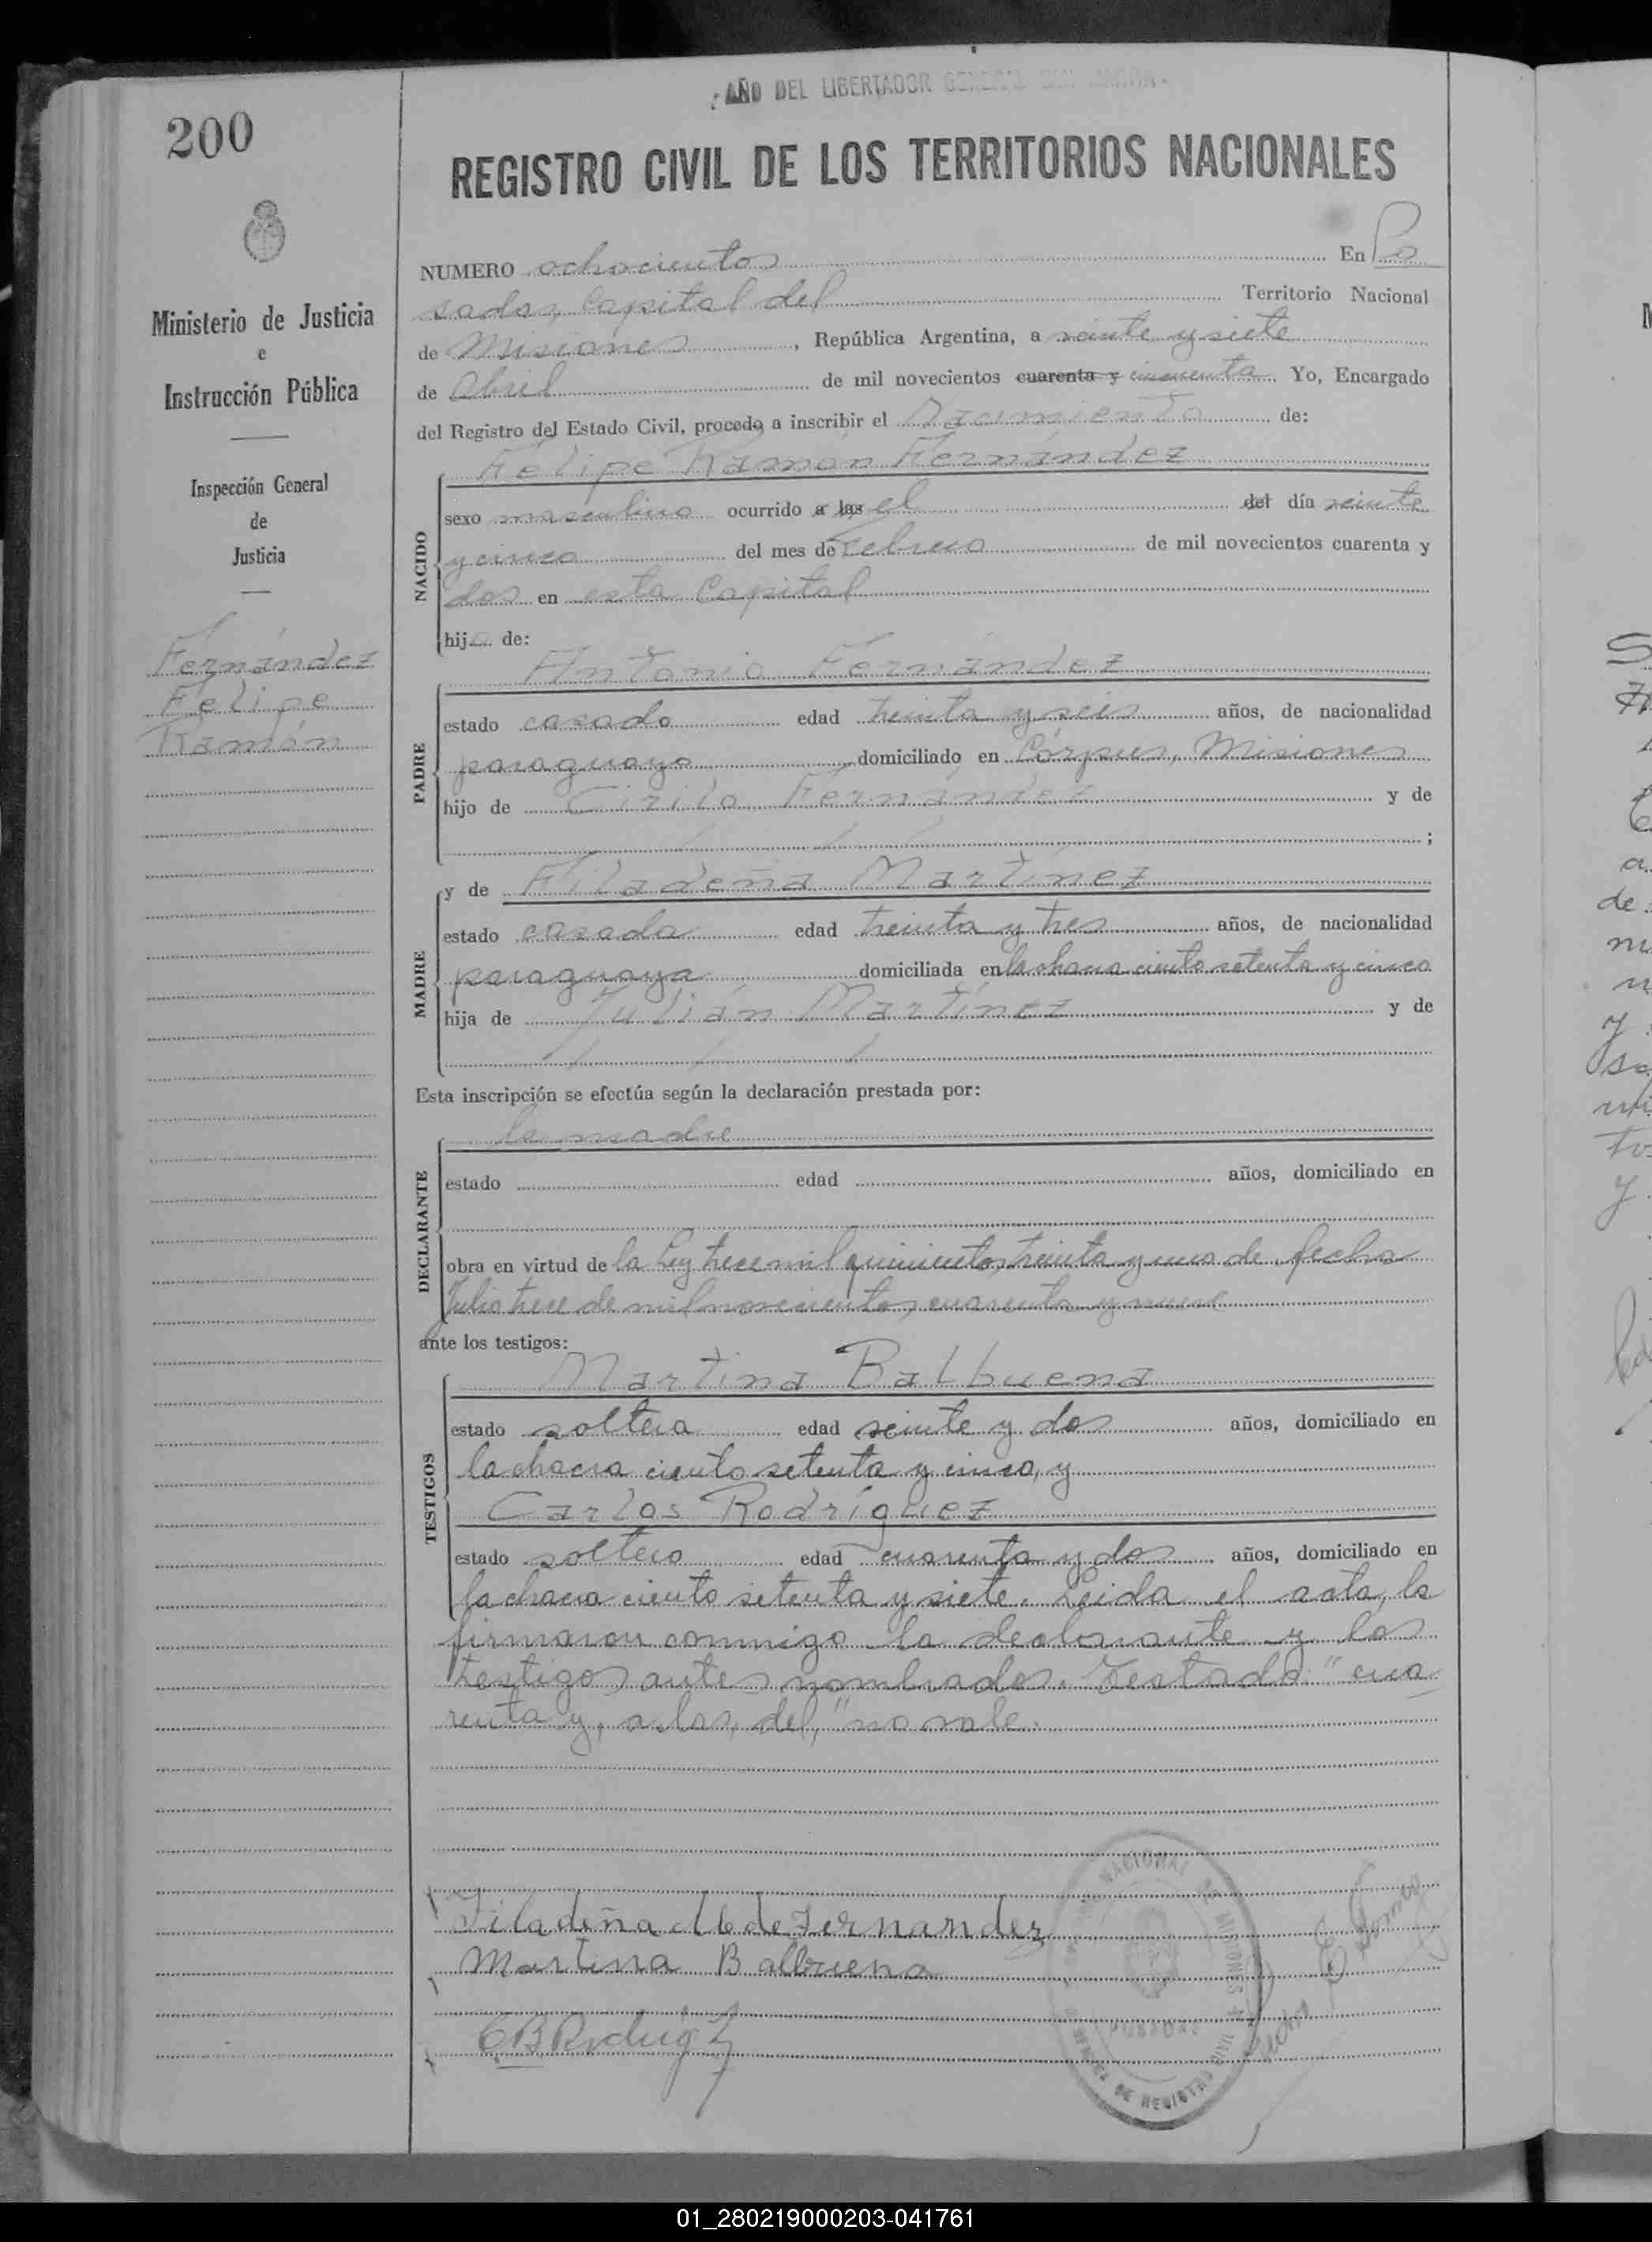 AÑO DEL LIBERTADOR GENERAL SAN MARTIN
200
REGISTRO CIVIL DE LOS TERRITORIOS NACIONALES
Ministerio de Justicia
e
Instrucción Pública
Inspección General
de
Justicia
Fernández
Felipe
Ramón
NUMERO ochocientos En Po
sadas, Capital del Territorio Nacional
de Misiones, República Argentina, a veinte y siete
de Abril de mil novecientos cuarenta y cincuenta. Yo, Encargado
del Registro del Estado Civil, procedo a inscribir el Nacimiento de:
Felipe Ramón Fernández
NACIDO
sexo masculino ocurrido a las el del día veinte
y cinco del mes de Febrero de mil novecientos cuarenta y
dos en esta Capital
hijo de:
Antonio Fernández
PADRE
estado casado edad treinta y seis años, de nacionalidad
paraguaya domiciliado en Córpus, Misiones
hijo de Cirilo Fernández y de
;
MADRE
y de Filadeña Martínez
estado casada edad treinta y tres años, de nacionalidad
paraguaya domiciliada en la chacra ciento setenta y cinco
hija de Julián Martínez y de
Esta inscripción se efectúa según la declaración prestada por:
la madre
DECLARANTE
estado edad años, domiciliado en
obra en virtud de la Ley trece mil quinientos treinta y uno de fecha
Julio trece de mil novecientos cuarenta y nueve
ante los testigos:
Martina Balbuena
TESTIGOS
estado soltera edad veinte y dos años, domiciliado en
la chacra ciento setenta y cinco, y
Carlos Rodríguez
estado soltero edad cuarenta y dos años, domiciliado en
la chacra ciento setenta y siete. Leida el acta, la
firmaron conmigo la declarante y los
testigos antes nombrados. Testado: "cua
renta y, a las, del," no vale.
Filadeña M de Fernandez
Martina Balbuena
CBRodrigz
POSADAS
01_280219000203-041761